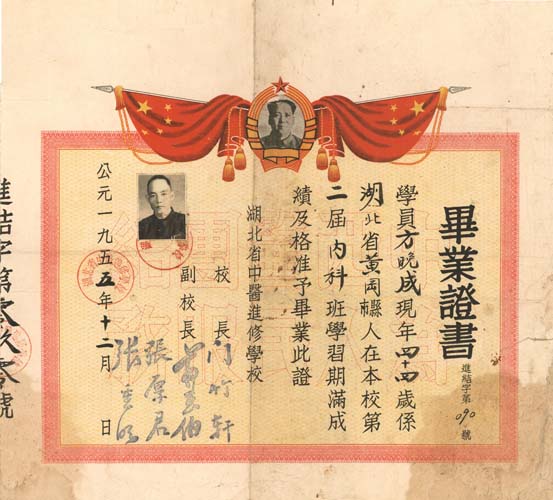 畢業證書
進結字第090號
學員方晚成現年四十四歲係
湖北省黃岡縣人在本校第
二屆內科班學習期滿成
績及格准予畢業此證
湖北省中醫進修學校
校長
副校長
張原君
公元一九五五年十二月 日
進結字第零玖零號